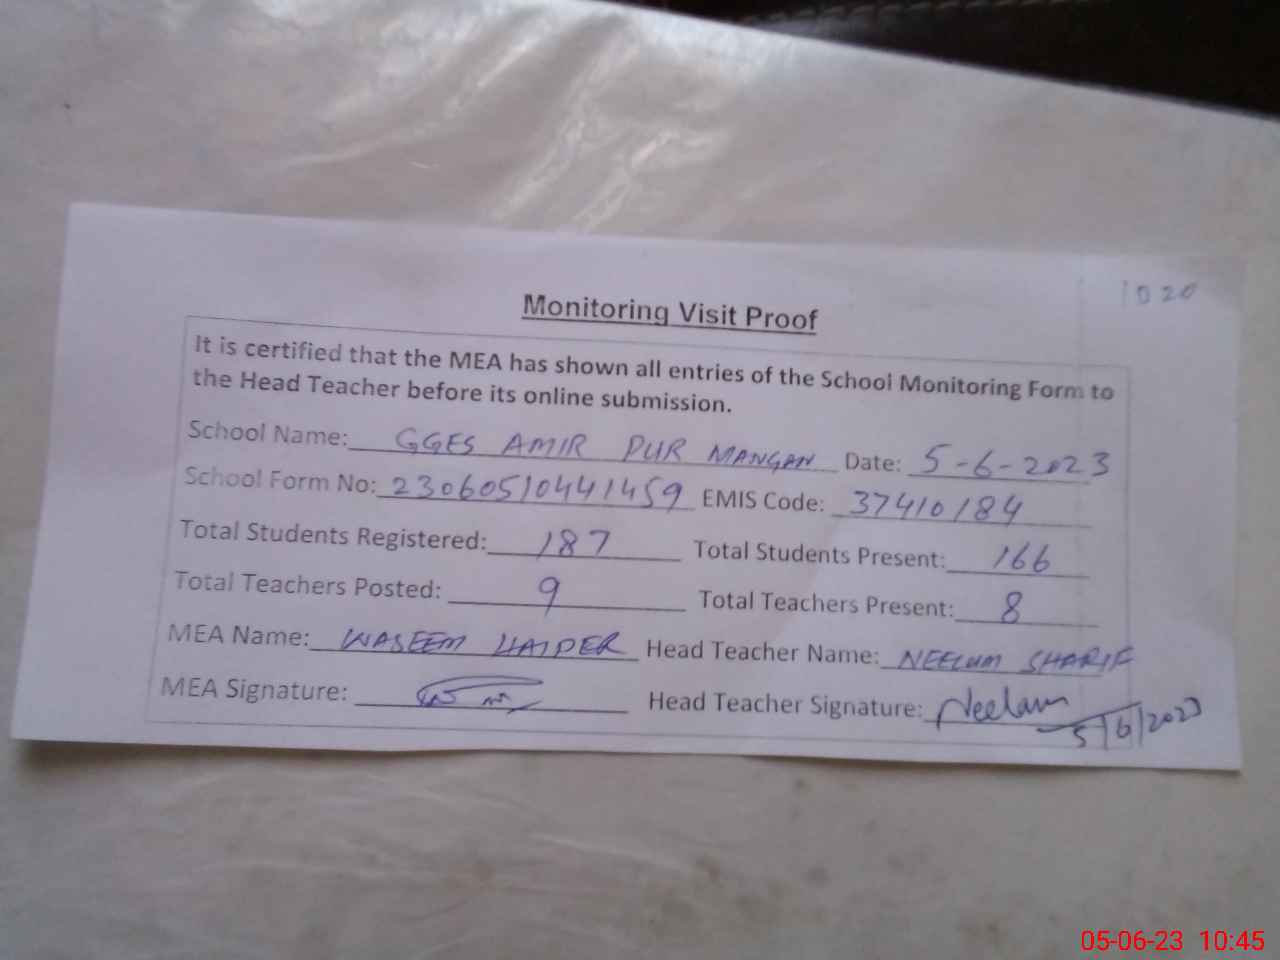 1020
Monitoring Visit Proof
It is certified that the MEA has shown all entries of the School Monitoring Form to
the Head Teacher before its online submission.
School Name: GGES AMIR PUR MANGAN Date: 5-6-2023
School Form No: 23060510441459 EMIS Code: 37410184
Total Students Registered: 187 Total Students Present: 166
Total Teachers Posted: 9 Total Teachers Present: 8
MEA Name: WASEEM HAIDER Head Teacher Name: NEELUM SHARIF
MEA Signature: Head Teacher Signature: Neelam
5/6/2023
05-06-23 10:45